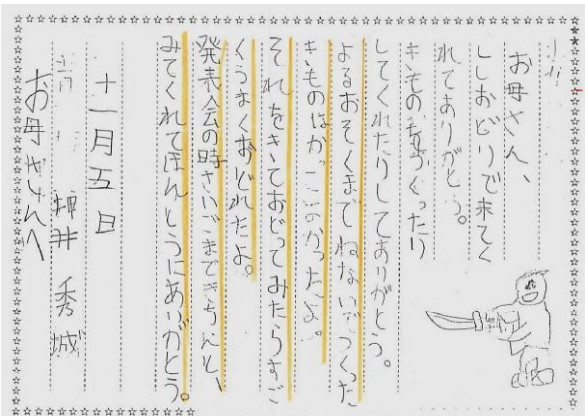 お母さん、
ししおどりで来てく
れてありがとう。
きもの
してくれたりしてありがとう。
よるおそくまでねないでつくった
きものはかっこよかったよ。
それをきておどってみたらすご
くうまくおどれたよ。
発表会の時さいごまできちんと、
みてくれてほんとうにありがとう。
十一月五日
井 秀城
お母さんへ